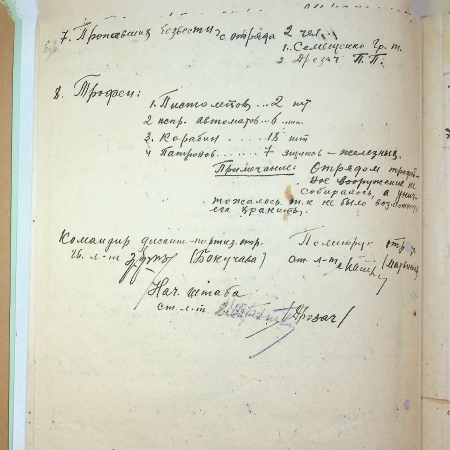 7. Пропавших безвести с отряда 2 чел.
1. Семещенко Гр. т.
2 Дрозач П. П.
8. Трофеи:
1. Пистолетов... 2 шт
2 испр. автоматов.. 6
3. Карабин ..... 18 шт
4 Патронов...... 7 ящиков – железных.
Примечание: Отрядом трофей-
ное вооружение не
собиралось, а унич-
тожалось т.к не было возможн.
его хранить.
Командир отр. Политрук отр.
л-т (Бокучава) ст. л-т
Нач. штаба
ст. л-т /Дрозач/